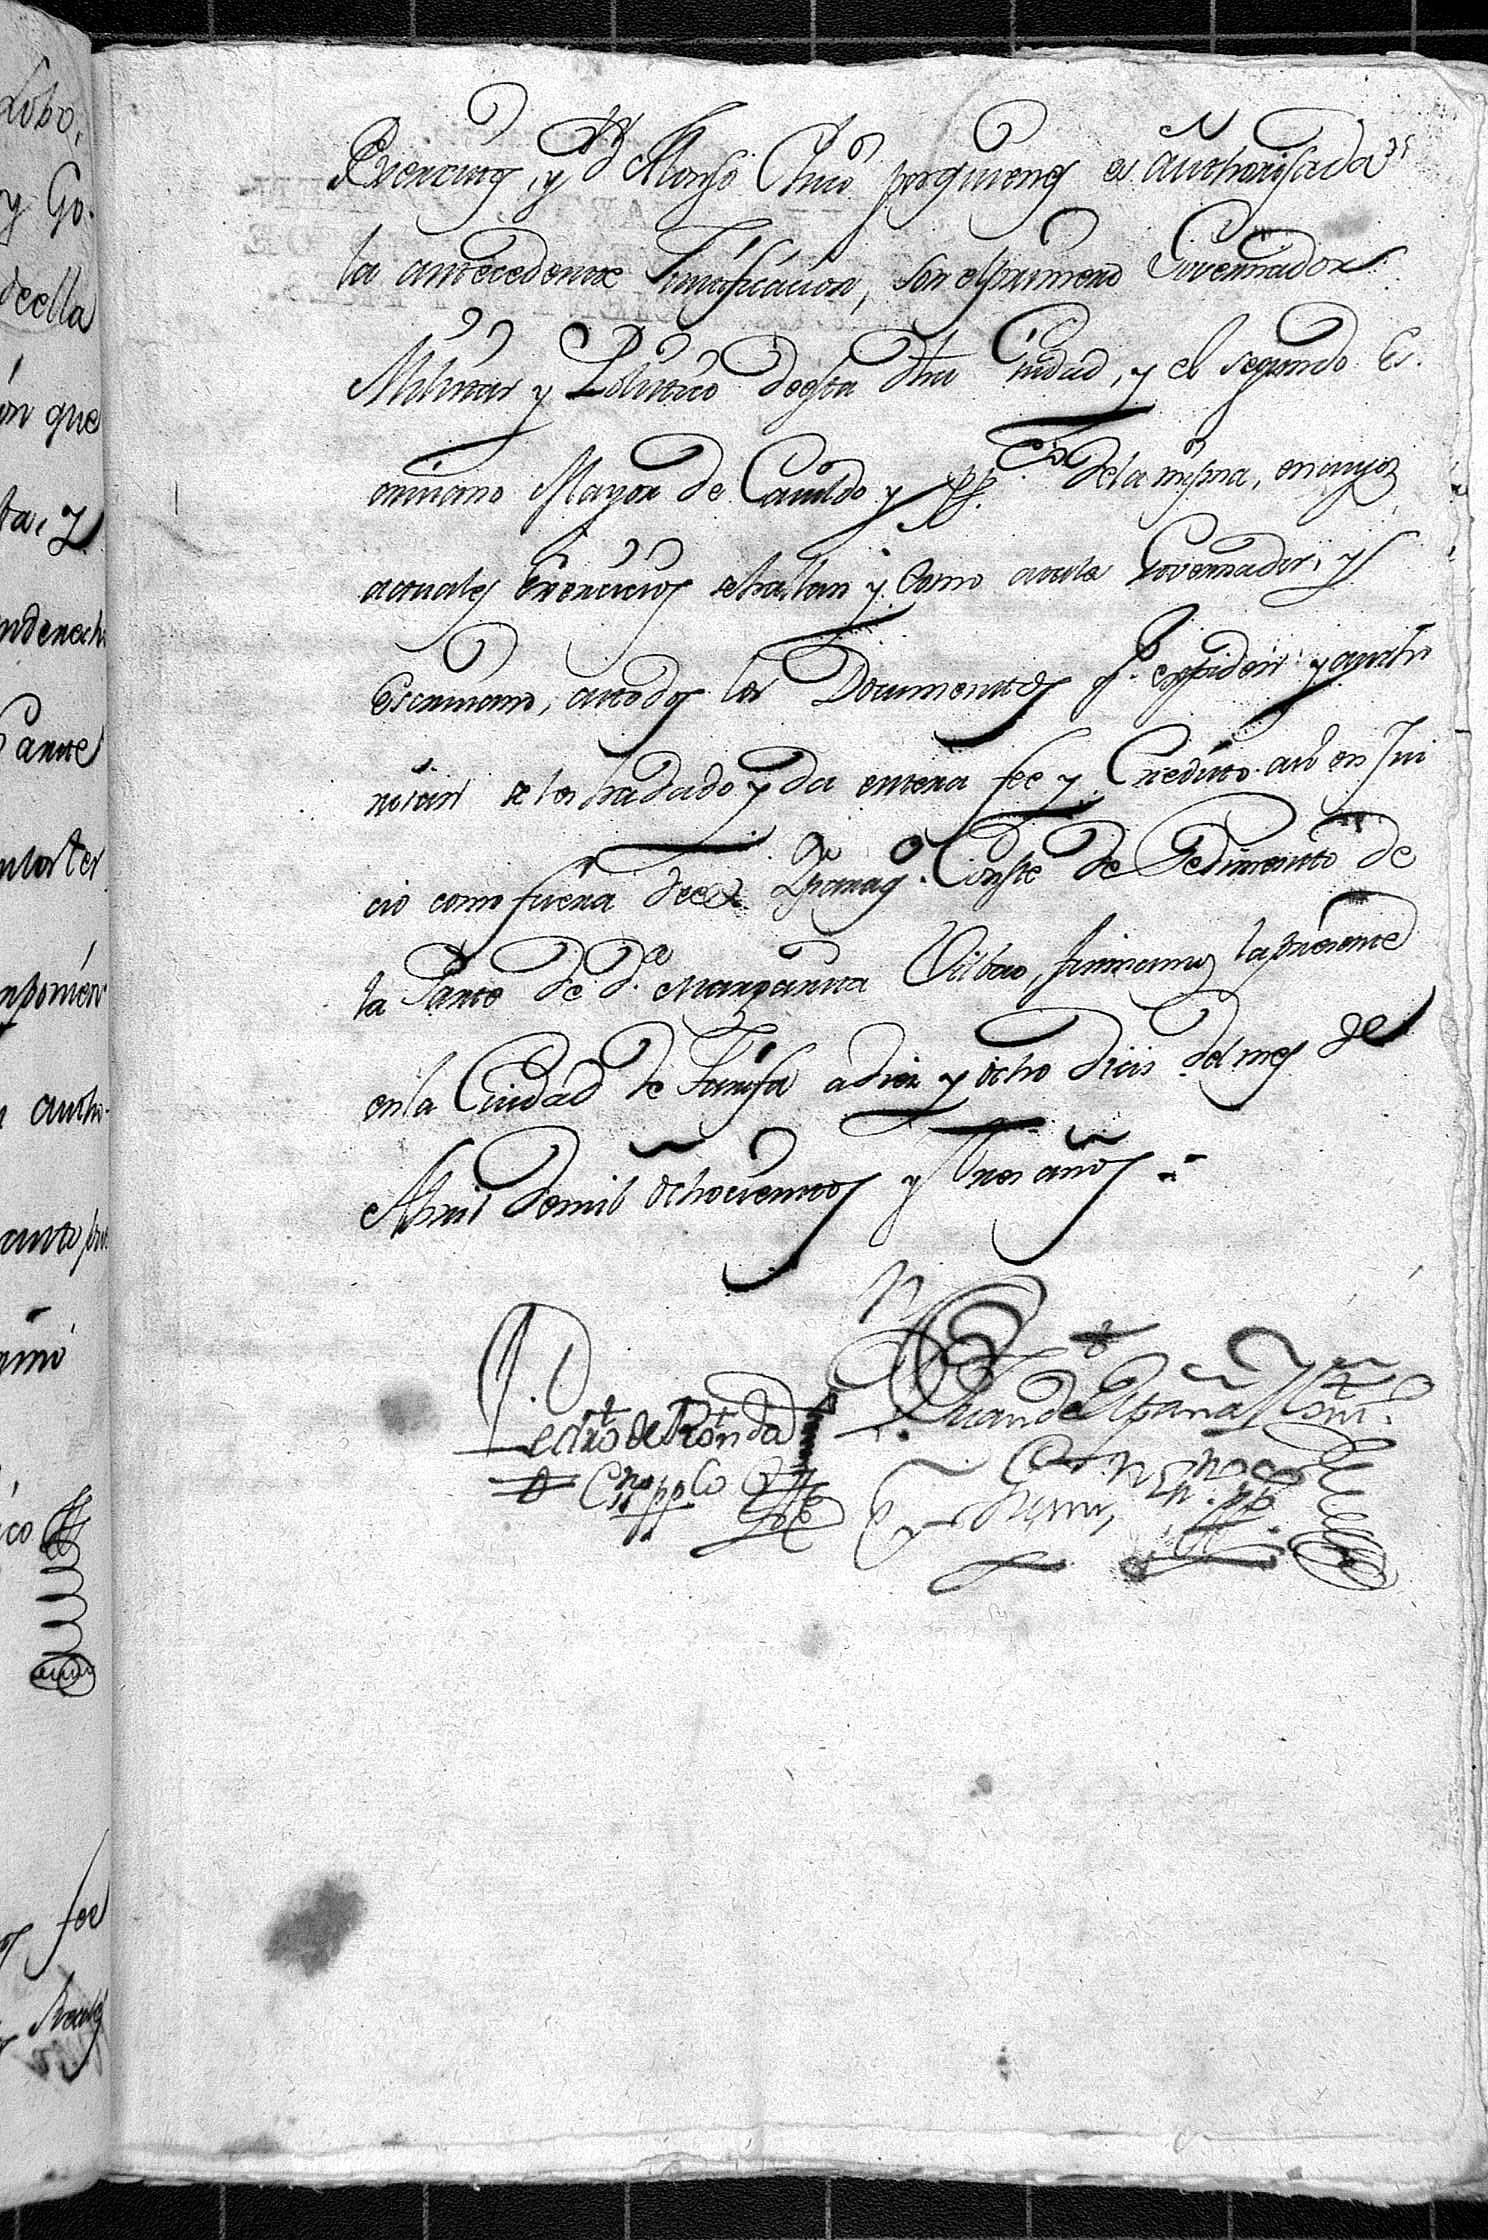 Lobo,
y Go-
de ella
ón que
ta, y
nderech
Parte
autho-
fee
Reales
Exercitos, y Dn Alonso Chico por quienes es authorisada
la antecedente Justificacion, son el primero Governador
Militar y Politico de esta dha Ciudad, y el segundo Es-
crivano Mayor de Cavildo y pp.co de la misma, en cuyos
actuales Exercicios se hallan y como a tal Governador, y
Escrivano, a todos los Documentos q.e expiden y autho
risan se les ha dado y da entera fee y Credito asi en Jui
cio como fuera de el. Y para q.e Conste de Pedimento de
la Parte de D.a Margarita Bilbao, firmamos la presente
en la Ciudad de Tarifa a diez y ocho dias del mes de
Abril de mil ochocientos y tres años.
Pedro de Ronda
Juan de España